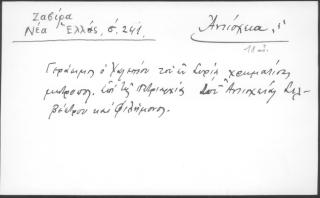 Ζαβίρα
Νέα Ἑλλάς, σ. 241.
Ἀντιόχεια
18 αἰ.
Γεράσιμος ὁ Χαλεπίου τοῦ ἐν Συρίᾳ χρηματίσας
μητροπ. ἐπὶ τῆς πατριαρχίας τοῦ Ἀντιοχείας Σιλ-
βέστρου καὶ Φιλήμονος.